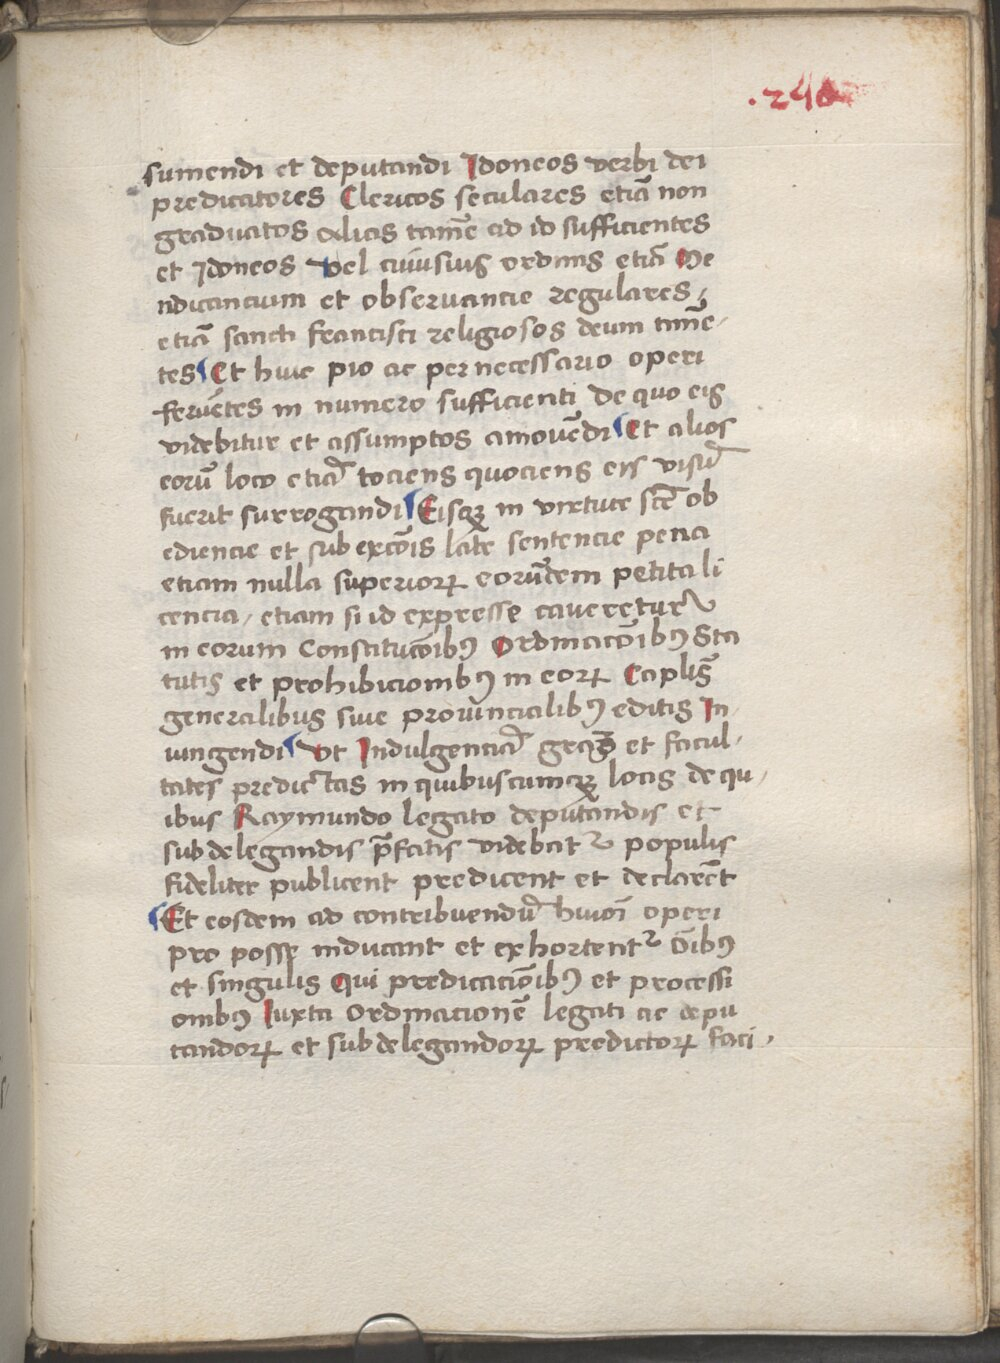 .240
sumendi et deputandi Idoneos verbi dei
predicatores Clericos seculares etiā non
graduatos alias tamē ad id sufficientes
et Idoneos vel cuiusuis ordinis etiā Me
ndicancium et obseruancie regulares,
etiā sancti francisci religiosos deum timē-
tes Et huic pio ac pernecessario operi
feruētes in numero sufficienti de quo eis
videbitur et assumptos amouēdi Et alios
eorū loco etiā tociens quociens eis visū
fuerit surrogandi Eisqꝫ in virtute scē ob
ediencie et sub excōis late sentencie pena
etiam nulla superioꝝ eorūdem petita li
cencia, etiam si id expresse caueretur
in eorum Constitucōibꝰ Ordinacōibꝰ Sta
tutis et prohibicionibꝰ in eoꝝ Caplis̄
generalibus siue prouincialibꝰ editis In-
iungendi Vt Indulgenciā et facul-
tates predictas in quibuscumqꝫ locis de qu-
ibus Raymundo legato deputandis et
subdelegandis p̄fatis videbit᷑ populis
fideliter publicent predicent et declarēt
Et eosdem ad contribuendū huiōi operi
pro posse inducant et exhortent᷑ ōibꝰ
et singulis Qui predicaciōibꝰ et processi
onibꝰ Iuxta Ordinacionē legati ac depu
tandoꝝ et subdelegandoꝝ predictoꝝ faci-